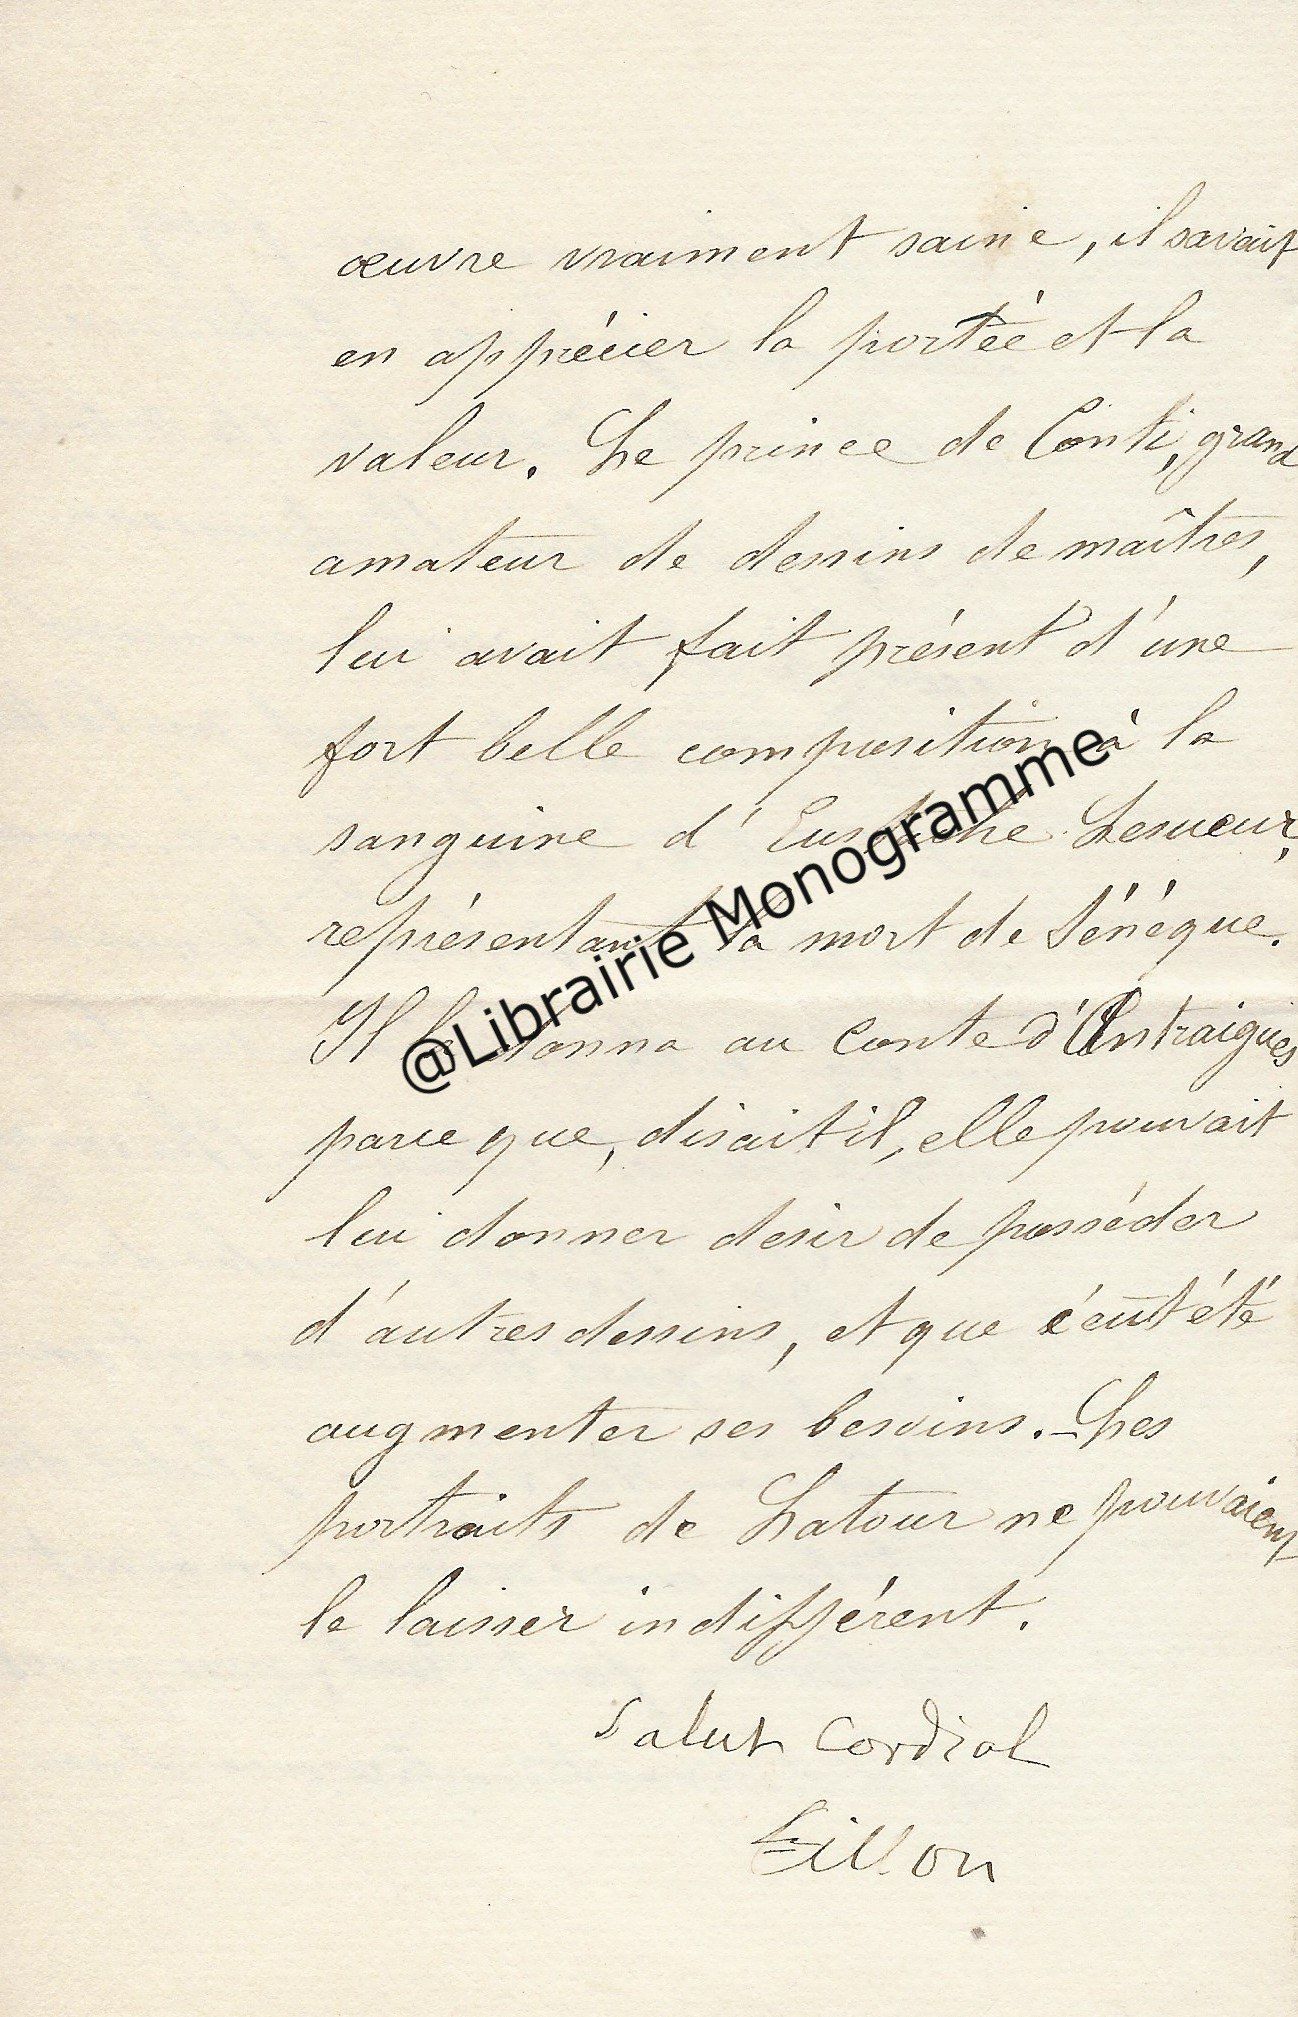 œuvre vraiment saine, il savait
en apprécier la portée et la
valeur. Le prince de Conti, grand
amateur de dessins de maîtres,
lui avait fait présent d'une
fort belle composition à la
sanguine d'Eustache Lesueur,
représentant la mort de Sénèque.
Il la donna au Conte d'Antraigues
parce que, disait il, elle pouvait
lui donner desir de posséder
d'autres dessins, et que c'eut été
augmenter ses besoins. - Les
portraits de Latour ne pouvaient
le laisser indifférent.
Salut Cordial
Fillon
@Librairie Monogramme